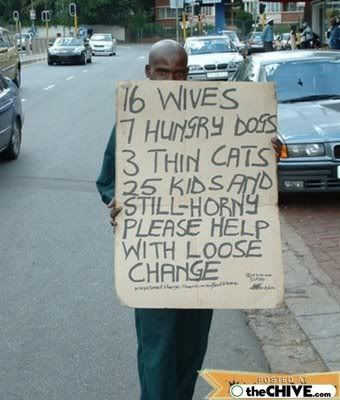 16 WIVES
7 HUNGRY DOGS
3 THIN CATS
25 KIDS AND
STILL-HORNY
PLEASE HELP
WITH LOOSE
CHANGE
POSTED AT
theCHIVE.com